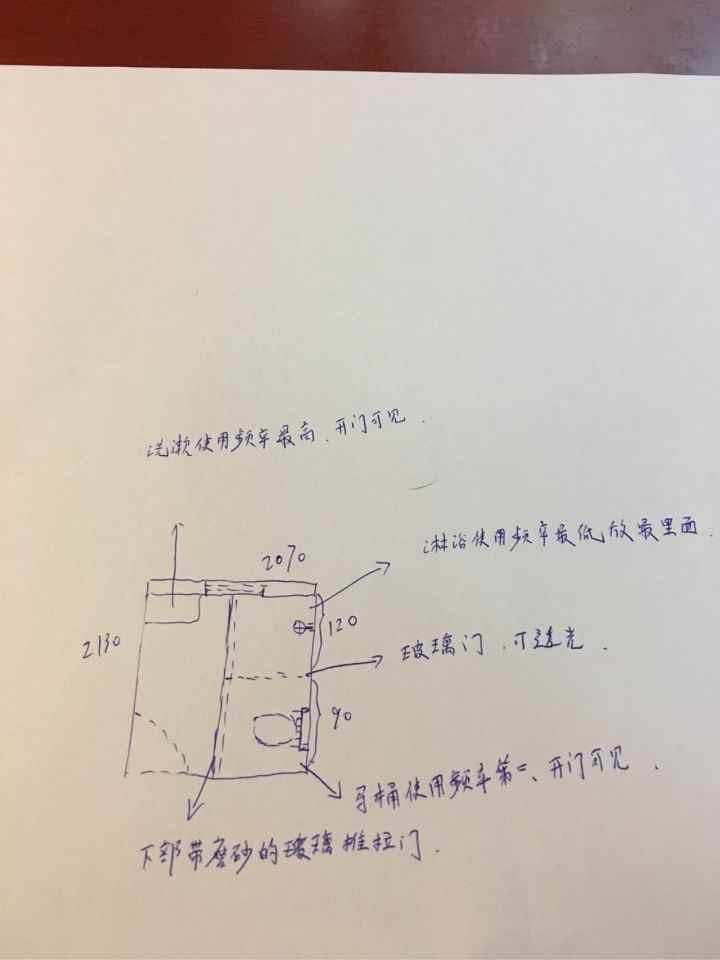 洗漱使用频率最高、开门可见.
2070
淋浴使用频率最低放最里面.
2130
120
玻璃门、可透光.
90
马桶使用频率第二、开门可见.
下部带磨砂的玻璃推拉门.